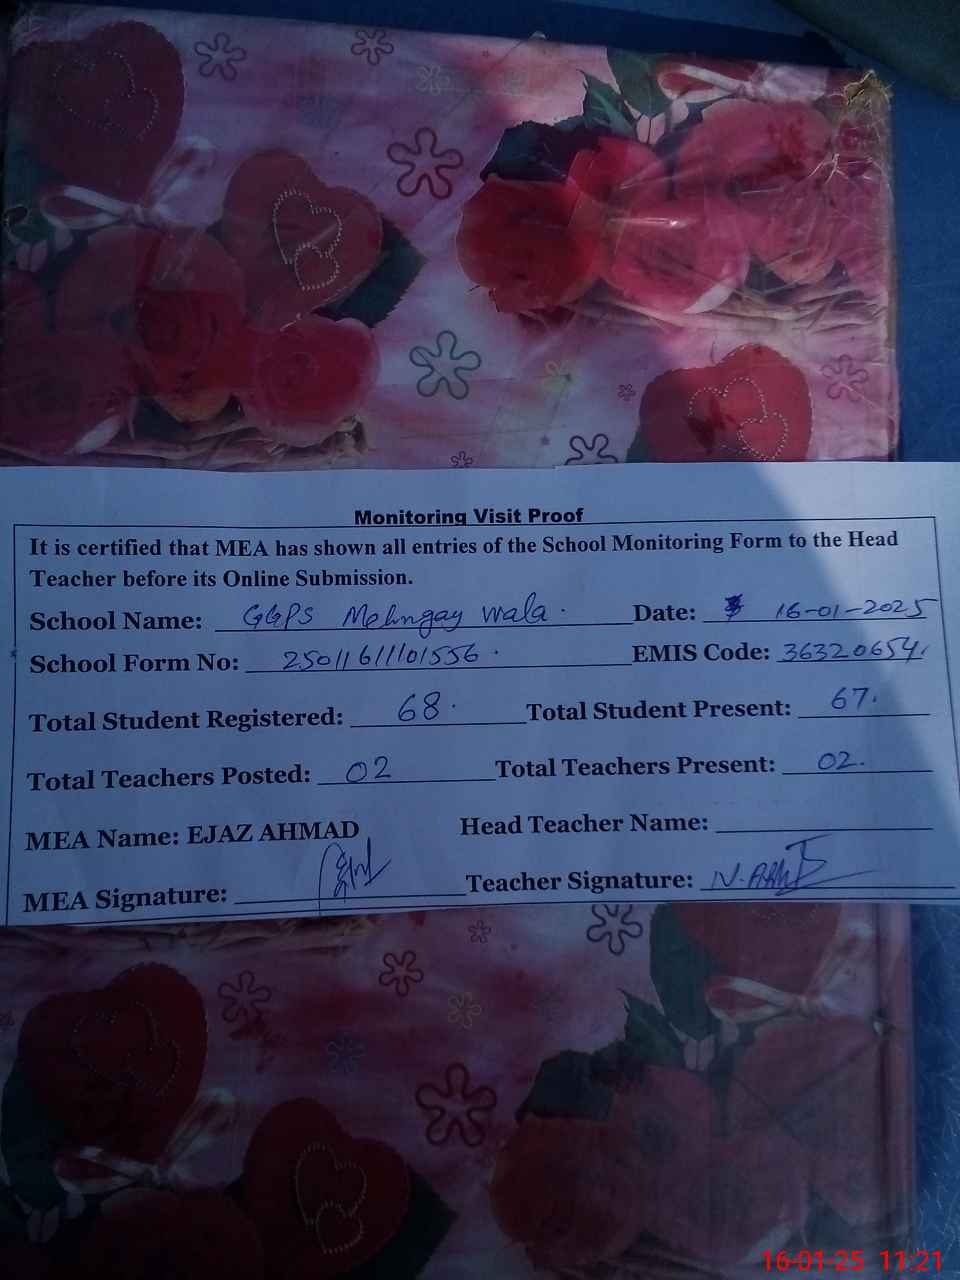 Monitoring Visit Proof
It is certified that MEA has shown all entries of the School Monitoring Form to the Head
Teacher before its Online Submission.
School Name: GGPS Mehngay wala. Date: 16-01-2025
School Form No: 25011611101556. EMIS Code: 36320654.
Total Student Registered: 68. Total Student Present: 67.
Total Teachers Posted: 02 Total Teachers Present: 02.
MEA Name: EJAZ AHMAD Head Teacher Name:
MEA Signature: Teacher Signature:
16-01-25 11:21